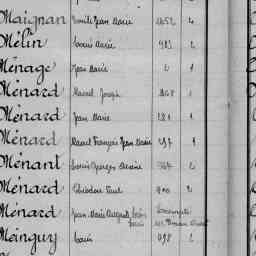 Maignan Emile Jean Marie 1652 4
Mélin Louis Marie 983 2
Ménage Jean Marie 6 1
Ménard Marcel Joseph 2
Ménard Jean Marie 281 1
Ménard Marcel François Jean Marie 297 1
Ménant Louis Georges 2
Ménard Théodore Paul 900 2
Ménard Jean Marie Auguste
Méinguy Louis 698 2